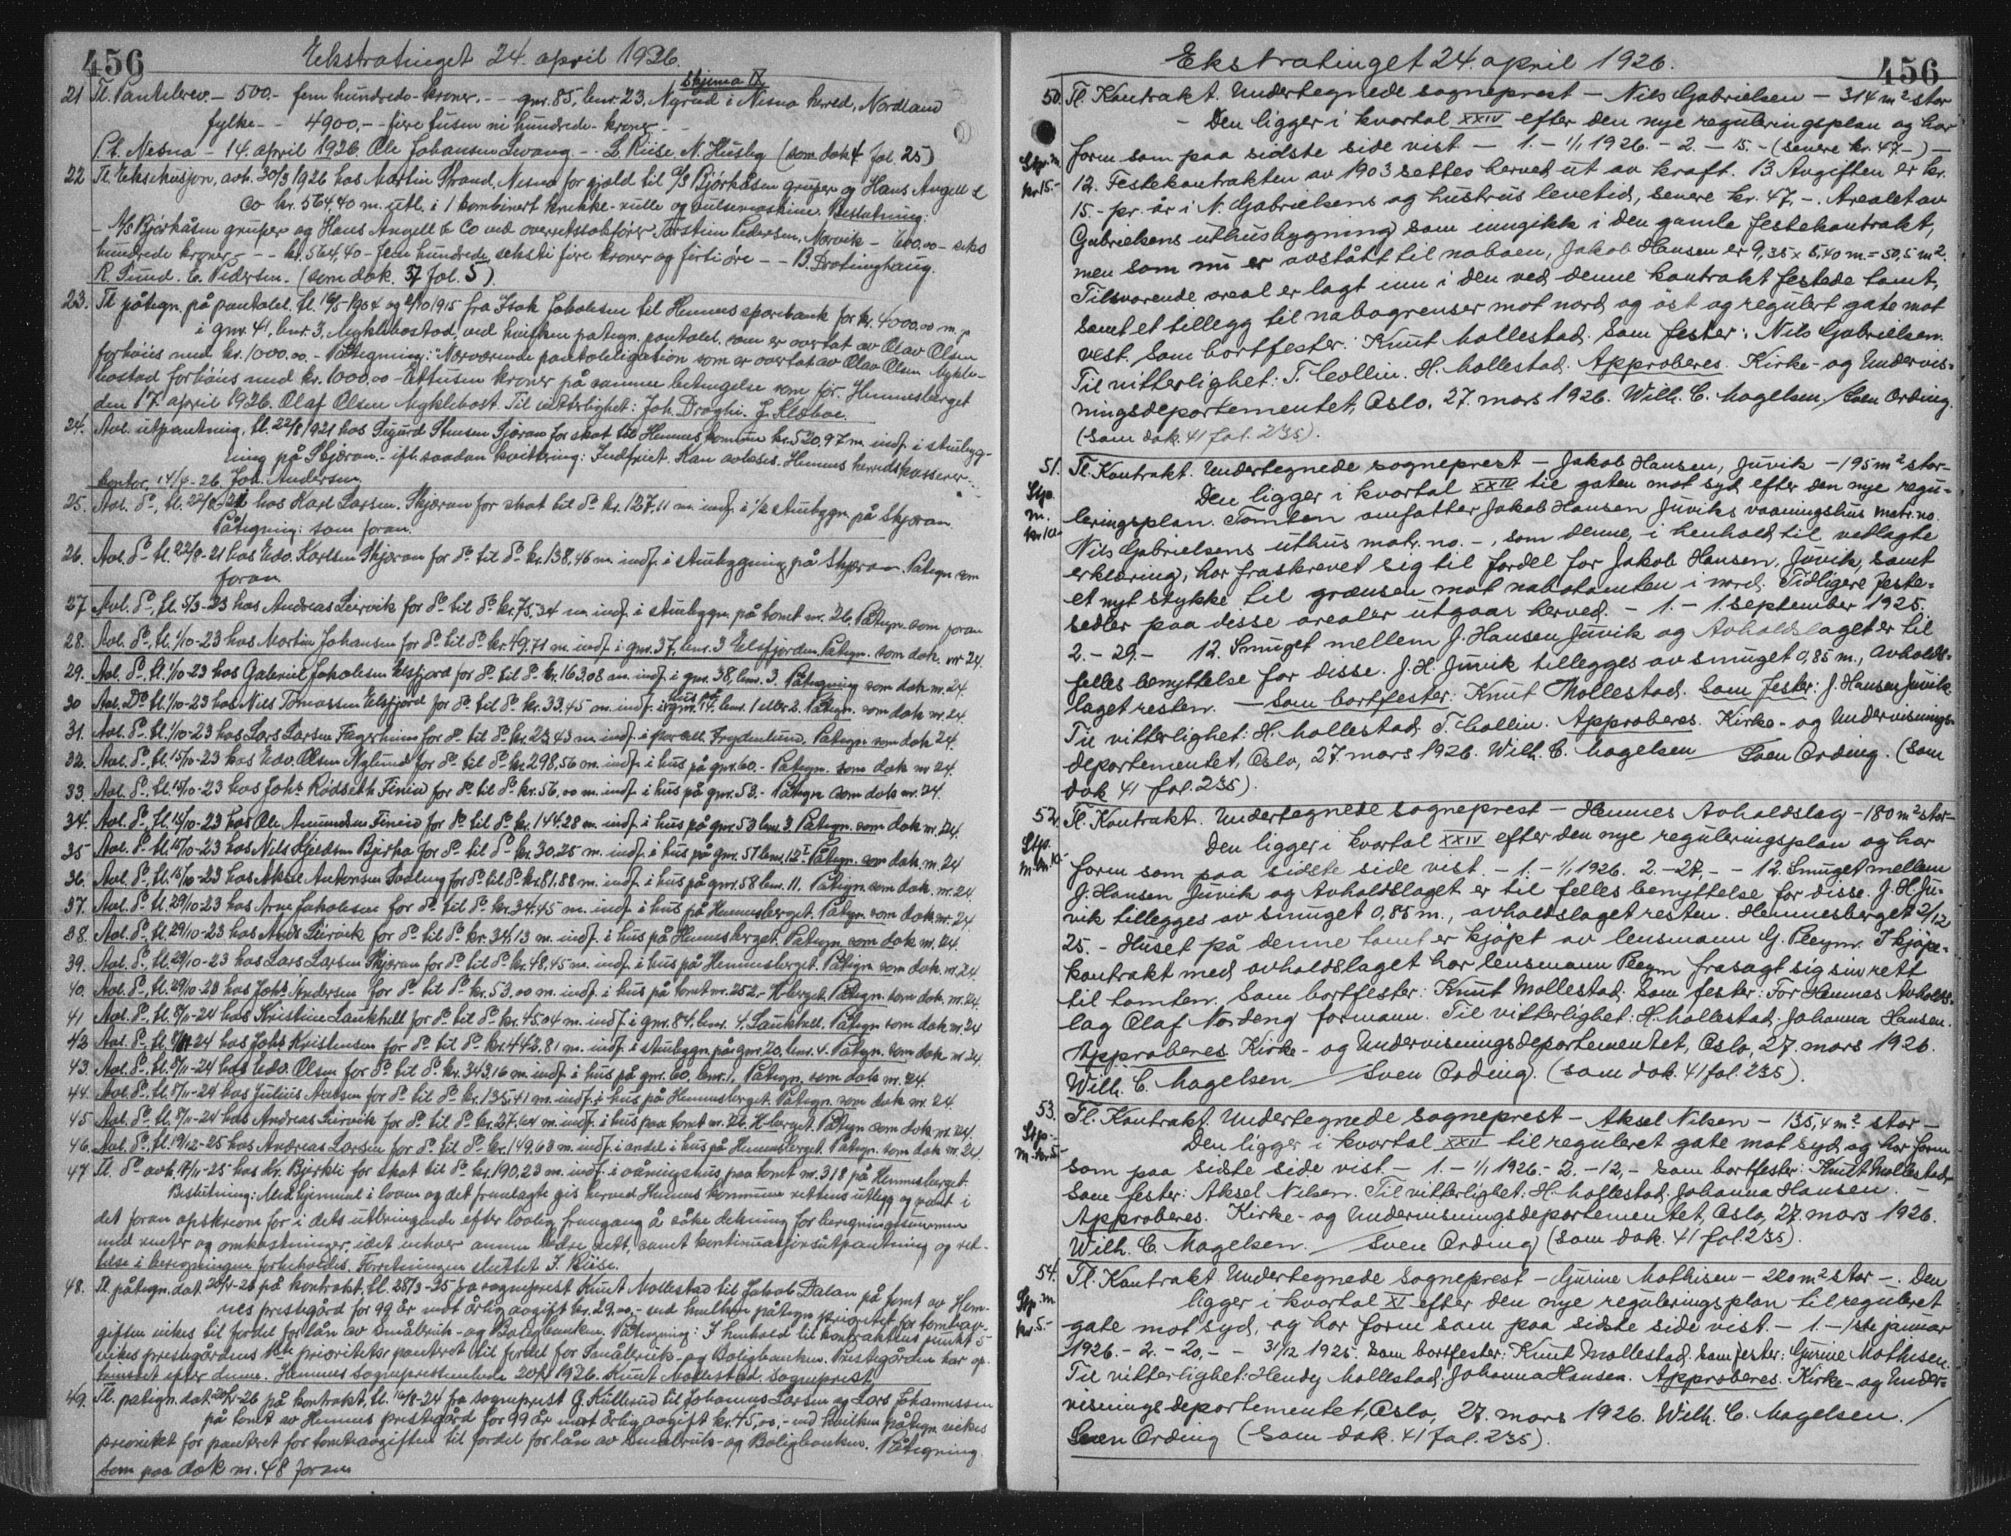 456
Ekstratinget 24. april 1926.
Skjema IX
21 Tl. Pantebrev. - 500.- fem hundrede kroner. - - gnr. 85, bnr. 23, Nyrud i Nesna herred, Nordland
fylke - - 4900,- - fire tusen ni hundrede kroner - -
P.t. Nesna - 14. april 1926. Ole Johansen Levang - - L. Riise. N. Husby (som dok 4 fol. 25)
22 Tl. Eksekusjon, avh. 30/3 1926 hos Martin Strand, Nesna for gjæld til A/S Bjørkåsen gruper og Hans Angell &
Co kr. 564,40 m. utl. i 1 kombinert knække-rulle og pulsemaskine. Beslutning:
- A/S Bjørkåsen gruper og Hans Angell & Co ved overretssakfører Torstein Pedersen, Narvik - 600.00 - seks
hundrede kroner - - - kr. 564,40 - fem hundrede seksti fire kroner og førti øre - - B. Brotinghaug.
R. Sund. C. Pedersen. (som dok. 37 fol. 5)
23. Tl påtegn. på pantobl. tl. 16/5-1904 og 2/10 1915 fra Isak Jakobsen til Hemnes sparebank for kr. 4000.00 m. p.
i gnr. 41. bnr. 3, Myklebostad, ved hvilken påtegn. pantobl. som er overtat av Olav Olsen
forhöies med kr. 1000.00. - Påtegning: "Nærværende pantobligation som er overtat av Olav Olsen Mykle-
bostad forhöies med kr. 1000,00 - Ettusen kroner på samme betingelse som för. Hemnesberget
den 17 april 1926. Olaf Olsen Myklebost. Til vitterlighet: Joh. Droghi. J. Klæboe.
24. Avl. utpantning, tl. 22/8 1921 hos Sigurd Stensen Sjöran for skat til Hemnes komune kr. 520,97 m. indf. i stubyg-
ning på Skjæran. - ifl. saadan kvittering: Indfriet. Kan avleses. Hemnes herredskasserer-
kontor, 14/4-26. Joh. Andersen
25. Avl. do, tl. 22/8-21 hos Karl Larsen, Skjæran for skat til do kr. 127,11 m. indf. i 1/2 stubygn. på Skjæran.
Påtegning: som foran.
26. Avl. do tl. 22/8-21 hos Edv. Karlsen Skjæran for do til do kr. 138,46 m. indf. i stubygning på Skjæran. Påtegn som
foran
27 Avl. do, tl. 5/3-23 hos Andreas Leirvik for do til do kr. 75,34 m. indf. i stubygn. på tomt nr. 26, Påtegn. som foran
28. Avl. do, tl. 1/10-23 hos Martin Johansen for do til do kr. 49,71 m. indf. i gnr. 37, bnr. 3 Elsfjorden. Påtegn. som dok. nr 24.
29. Avl. do, tl. 1/10-23 hos Gabriel Jakobsen Elsfjord for do til do kr. 163,08 m. indf. i gnr. 38, bnr. 3. Påtegning som dok nr. 24.
30 Avl. Do tl. 1/10-23 hos Nils Tomassen Elsfjord for do til do kr. 33,45 m. indf. i hus på gnr. 14. bnr. 1 eller 2. Påtegn. som dok nr. 24.
31. Avl. do tl. 1/10-23 hos Lars Larsen Fagerheim for do til do kr. 23,43 m. indf. i parcell. Frydenlund. Påtegn som dok 24.
32. Avl. do, tl. 15/10-23 hos Edv. Olsen Nylund for do til do kr. 298,56 m. indf. i hus på gnr. 60. - Påtegn. som dok nr 24.
33. Avl. do, tl. 15/10-23 hos Johs Rödseth Fineid for do til do kr. 56.00 m. indf. i hus på gnr. 53. - Påtegn som dok nr. 24.
34. Avl. do, tl. 15/10-23 hos Ole Amundsen Fineid for do til do kr. 144.28 m. indf. i hus på gnr. 53 bnr. 3 Påtegn. som dok nr. 24.
35 Avl. do tl. 15/10-23 hos Nils Kjeldsen Bjerka for do til do kr. 30.25 m. indf. i hus på gnr. 51 bnr. 12 Påtegn. som dok. nr. 24
36. Avl. do, tl. 15/10-23 hos Aksel Antonsen for do til do kr. 81,88 m. indf. i hus på gnr. 58 bnr. 11. Påtegn. som dok. nr. 24
37. Avl. do, tl. 29/10-23 hos Arne Jakobsen for do til do kr. 34.45 m. indf. i hus på Hemnesberget. Påtegn. som dok. nr. 24
38. Avl. do, tl. 29/10-23 hos Leirvik for do til do kr. 34,13 m. indf. i hus på Hemnesberget. Påtegn. som dok nr. 24.
39. Avl. do, tl. 29/10-23 hos Lars Larsen Skjæran for do til do kr. 48,45 m. indf. i hus på Hemnesberget. Påtegn som dok. nr. 24
40. Avl. do, tl. 29/10-23 hos Johs Andersen for do til do kr. 53.00 m. indf. i hus på tomt nr. 252. - H-berget. Påtegn. som dok. nr. 24.
41 Avl. do, tl. 8/11-24 hos Kristine Laukhell for do til do kr. 45.04 m. indf. i gnr. 84. bnr. 4. Laukhell. Påtegn som dok nr. 24
42 Avl. do, tl. 8/11-24 hos Johs Kristensen for do til do kr. 442.81 m. indf. i stubygn. på gnr. 70. bnr. 4. Påtegn. som dok nr. 24.
43. Avl. do, tl. 8/11-24 hos Edv. Olsen for do til do kr. 343,16 m. indf. i hus på gnr. 60, bnr. 1. Påtegn. som dok nr. 24.
44. Avl. do, tl. 8/11-24 hos Julius for do til do kr. 135,41 m. indf. i hus på Hemnesberget. Påtegn. som dok nr. 24.
45 Avl. do, tl. 8/11-24 hos Andreas Leirvik for do til do kr. 27.64 m. indf. i hus paa tomt nr. 26. H-berget. Påtegn som dok nr. 24.
46. Avl. do, tl. 19/12-25 hos Andreas Larsen for do til do kr. 149.63 m. indf. i andel i hus på Hemnesberget. Påtegn. som dok nr. 24.
47 Tl. do avh. 17/11-25 hos Kr. Bjerkli for skat til do kr. 190,23 m. indf. i våningshus paa tomt nr. 318 på Hemnesberget.
Beslutning: Med hjemmel i loven og det fremlagte gis herved Hemnes kommune rettens utlegg og pant i
det foran opskrevne for i dets utbringende efter lovlig fremgang å söke dekning for beregningssummen
med renter og omkostninger, idet enhver annen bedre rett, samt kontinuasjonsutpantning og ret-
telse i beregningen forbeholdes. Forretningen sluttet J. Riise.
48. Tl påtegn. dat 20/4-26 på kontrakt, tl. 28/3-25 fra sogneprest Knut Mollestad til Jakob Dalan på tomt av Hem-
nes prestegård for 99 år mot årlig avgift kr. 29.00,- ved hvilken påtegn prioritet for tomteav-
giften vikes til fordel for lån av Småbruk- og Boligbanken. Påtegning: I henhold til kontraktens punkt 5
vikes prestegårdens 1ste prioritets panteret til fordel for Småbruk- og Boligbanken. Prestegården har op-
trinsret efter denne. Hemnes sogneprestembede 20/4 1926. Knut Mollestad sogneprest
49. Tl. påtegn. dat 20/4-26 på kontrakt, tl. 16/8-24 fra sogneprest G. Kullerud til Johannes Larsen og Lars Johannessen
på tomt av Hemnes prestegård for 99 år mot årlig avgift kr. 45,00,- ved hvilken påtegn vikes
prioritet for pantret for tomteavgiften til fordel for lån av Småbruk- og Boligbanken. Påtegning
som paa dok nr. 48 foran
Ekstratinget 24. april 1926.
456
50. Tl. Kontrakt. Undertegnede sogneprest - Nils Gabrielsen - 314 m² stor
- Den ligger i kvartal XXIV efter den nye reguleringsplan og har
Stp. m. kr. 15.-
form som paa sidste side vist - 1. - 1/1 1926. - 2. - 15. - (senere kr. 47.-) -
12. Festekontrakten av 1903 settes herved ut av kraft. 13. Avgiften er kr.
15.- pr. år i N. Gabrielsens og hustrus levetid, senere kr. 47,-. Arealet av
Gabrielsens uthusbygning som inngikk i den gamle festekontrakt,
men som nu er avstått til naboen, Jakob Hansen er 9,35 x 5,40 m. = 50,5 m².
Tilsvarende areal er lagt inn i den ved denne kontrakt festede tomt,
samt et tillegg til nabogrenser mot nord og öst og regulert gate mot
vest. Som bortfester: Knut Mollestad. Som fester: Nils Gabrielsen.
Til vitterlighet: T. Collin. H. Mollestad. Approberes. Kirke- og Undervis=
ningsdepartementet, Oslo, 27. mars 1926. Wilh. C. Magelsen / Sven Ording.
(Som dok. 41 fol. 235).
51. Tl. Kontrakt. Undertegnede sogneprest - Jakob Hansen, Juvik - 195 m² stor-
Den ligger i kvartal XXIV til gaten mot syd efter den nye regu=
Stp. m. kr. 10.-
leringsplan. Tomten omfatter Jakob Hansen Juviks vaaningshus matr. no.
Nils Gabrielsens uthus matr. no. -, som denne, i henhold til vedlagte
erklæring, har fraskrevet sig til fordel for Jakob Hansen, Juvik, samt
et nyt stykke til grænsen mot nabotomten i nord. Tidligere feste=
sedler paa disse arealer utgaar herved. - 1. - 1. september 1925.
2. - 29. - 12. Smuget mellem J. Hansen Juvik og Avholdslaget er til
felles benyttelse for disse. J. H. Juvik tillegges av smuget 0,85 m., avholds=
laget resten. - Som bortfester: Knut Mollestad. Som fester: J. Hansen Juvik
Til vitterlighet: H. Mollestad, T. Collin. Approberes. Kirke- og Undervisnings-
departementet, Oslo, 27. mars 1926. Wilh. C. Magelsen / Sven Ording. (Som
dok 41 fol. 235).
52. Tl. Kontrakt. Undertegnede sogneprest - Hemnes Avholdslag - 180 m² stor-
Den ligger i kvartal XXIV efter den nye reguleringsplan og har
Stp. m. kr. 10.-
form som paa sidste side vist. - 1. - 1/1 1926. 2. - 27,- - 12. Smuget mellem
J. Hansen Juvik og Avholdslaget er til felles benyttelse for disse. J. H. Ju-
vik tillegges av smuget 0,85 m., avholdslaget resten. Hemnesberget 2/12
25. - Huset på denne tomt er kjöpt av lensmann G. Pleym. I kjöpe=
kontrakt med avholdslaget har lensmann Pleym frasagt sig sin rett
til tomten. Som bortfester: Knut Mollestad. Som fester: For Hemnes Avholds-
lag Olaf Nordeng formann. Til vitterlighet: H. Mollestad. Johanna Hansen.
Approberes. Kirke- og Undervisningsdepartementet, Oslo, 27. mars 1926.
Wilh. C. Magelsen / Sven Ording. (som dok. 41 fol. 235).
53. Tl. Kontrakt. Undertegnede sogneprest - Aksel Nilsen - 135,4 m² stor -
Den ligger i kvartal XXIV til reguleret gate mot syd, og har form
Stp.- m. kr. 5.-
som paa sidste side vist. - 1. - 1/1 1926. - 2. - 12,- Som bortfester: Knut Mollestad.
Som fester: Aksel Nilsen. Til vitterlighet: H. Mollestad. Johanna Hansen. -
Approberes. Kirke- og Undervisningsdepartementet, Oslo, 27. mars 1926.
Wilh. C. Magelsen. / Sven Ording (Som dok. 41 fol. 235).
54. Tl. Kontrakt. Undertegnede Sogneprest - Gurine Mathisen - 220 m² stor -. Den
ligger i kvartal XI efter den nye reguleringsplan til reguleret
Stp. m. kr. 5.-
gate mot syd, og har form som paa sidste side vist. - 1. - 1ste januar
1926. - 2. - 20,- - 31/12 1925. Som bortfester: Knut Mollestad. Som fester: Gurine Mathisen.
Til vitterlighet: Hendy Mollestad, Johanna Hansen. Approberes. Kirke- og Under=
visningsdepartementet, Oslo, 27. mars 1926. Wilh. C. Magelsen. /
Sven Ording (Som dok. 41 fol. 235).